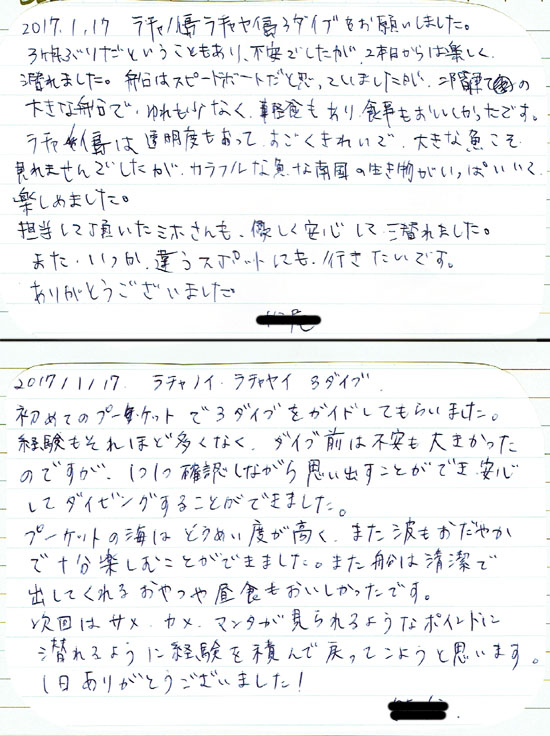 2017.1.17 ラチャノイ島ラチャヤイ島3ダイブをお願いしました。
3ヶ月ぶりだということもあり、不安でしたが、2本目からは楽しく
潜れました。船はスピードボートだと思っていましたが、二階建ての
大きな船で、ゆれも少なく、軽食もあり、食事もおいしかったです。
ラチャ島は透明度もあって、すごくきれいで、大きな魚こそ
見れませんでしたが、カラフルな魚な南国の生き物がいっぱいいて
楽しめました。
担当して頂いたミホさんも、優しく安心して潜れました。
また、いつか、違うスポットにも、行きたいです。
ありがとうございました。
2017/1/17. ラチャノイ・ラチャヤイ 3ダイブ.
初めてのプーケットで3ダイブをガイドしてもらいました。
経験もそれほど多くなく、ダイブ前は不安も大きかった
のですが、1つ1つ確認しながら思い出すことができ、安心
してダイビングすることができました。
プーケットの海はとうめい度が高く、また波もおだやか
で十分楽しむことができました。また船は清潔で
出してくれるおやつや昼食もおいしかったです。
次回はサメ・カメ・マンタが見られるようなポイントに
潜れるように経験を積んで戻ってこようと思います。
1日ありがとうございました!